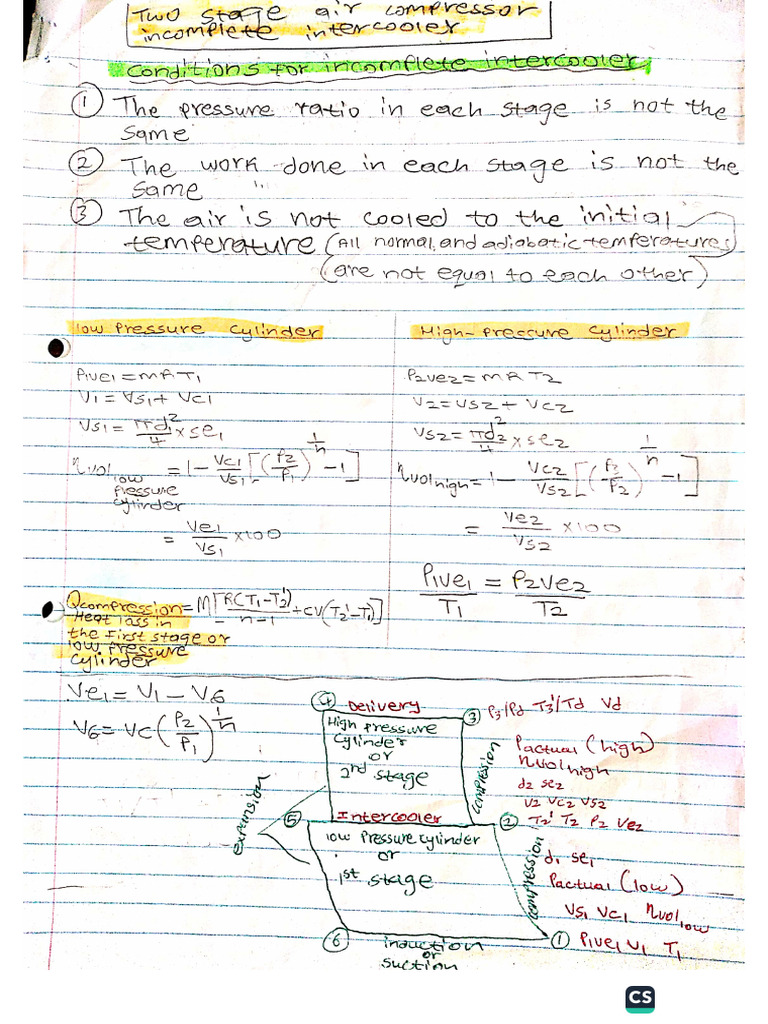 Two stage air compressor
incomplete intercooler
Conditions for incomplete intercooler
① The pressure ratio in each stage is not the
same
② The work done in each stage is not the
same
③ The air is not cooled to the initial
temperature (All normal and adiabatic temperatures)
(are not equal to each other)
low pressure cylinder
P1ve1 = MRT1
V1 = Vs1 + Vc1
Vs1 = πd1²/4 × se1
ηvol low pressure cylinder = 1 - Vc1/Vs1 [(P2/P1)^1/n - 1]
= Ve1/Vs1 × 100
High-preccure cylinder
P2ve2 = MRT2
V2 = Vs2 + Vc2
Vs2 = πd2²/4 × se2
ηvol high = 1 - Vc2/Vs2 [(P3/P2)^1/n - 1]
= Ve2/Vs2 × 100
P1ve1/T1 = P2ve2/T2
Qcompression = M[R(T1-T2')/n-1 + CV(T2'-T1)]
Heat loss in
the first stage or
low pressure
cylinder
Ve1 = V1 - V6
V6 = Vc(P2/P1)^1/n
④ Delivery
③ P3/Pd T3'/Td Vd
High pressure
cylinder
or
2nd stage
compression
Pactual (high)
ηvol high
d2 se2
V2 Vc2 Vs2
expansion
⑤ Intercooler
② T2' T2 P2 Ve2
low pressure cylinder
or
1st stage
compression
d1 se1
Pactual (low)
Vs1 Vc1 ηvol low
⑥ induction
or
suction
① P1ve1 V1 T1
CS